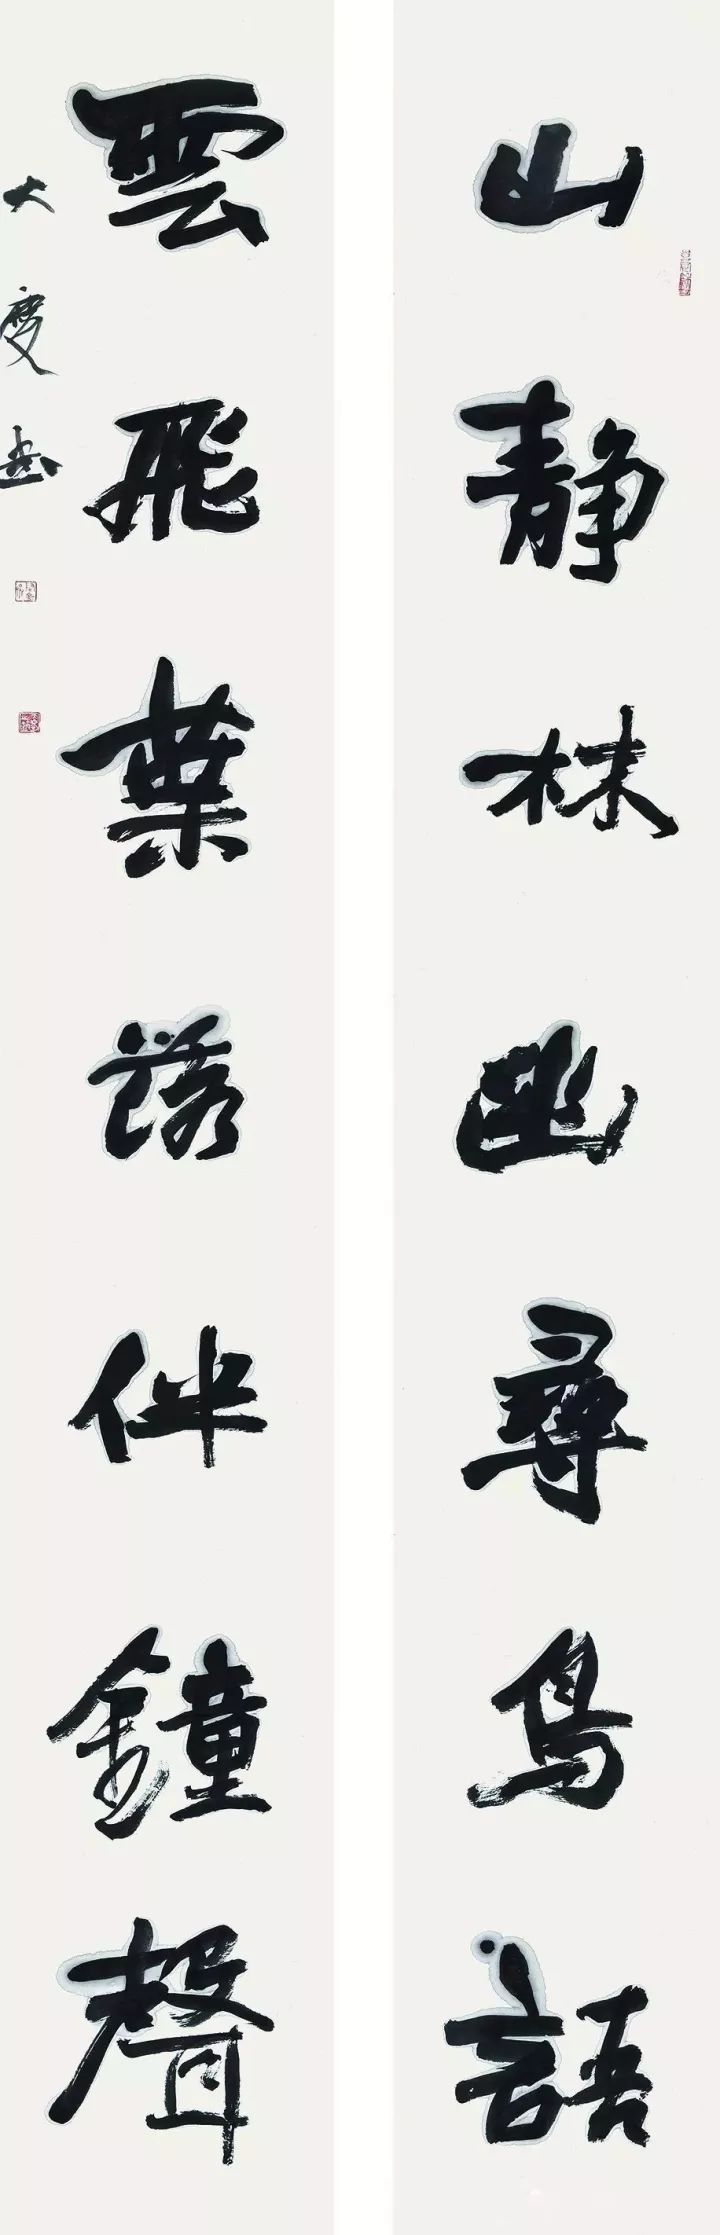 山靜林幽尋鳥語
雲飛葉落伴鐘聲
大度書